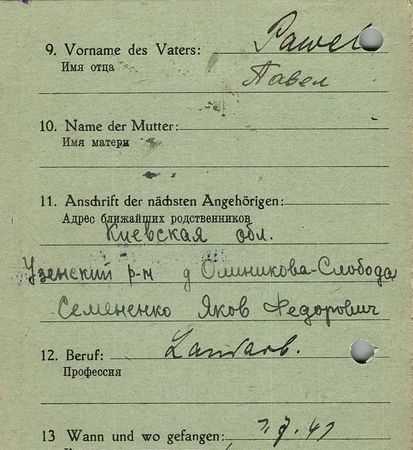 9. Vorname des Vaters: Pawel
Имя отца Павел
10. Name der Mutter:
Имя матери
11. Anschrift der nächsten Angehörigen:
Адрес ближайших родственников
Киевская обл.
Узенский р-н д Олиникова-Слобода
Семененко Яков Федорович
12. Beruf: Landarb.
Профессия
13 Wann und wo gefangen: 7.41